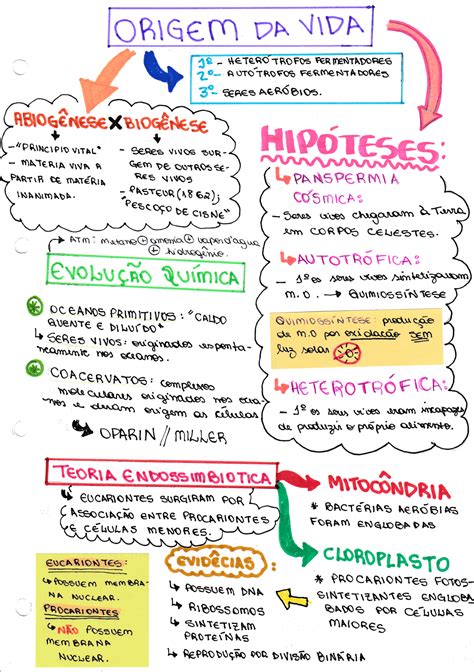 ORIGEM DA VIDA
1º - HETERÓTROFOS FERMENTADORES
2º - AUTÓTROFOS FERMENTADORES
3º - SERES AERÓBIOS.
ABIOGÊNESE X BIOGÊNESE
- "PRINCIPIO VITAL"
- MATERIA VIVA A
PARTIR DE MATÉRIA
INANIMADA.
- SERES VIVOS SUR-
GEM DE OUTROS SE-
RES VIVOS
- PASTEUR (1862);
"PESCOÇO DE CISNE"
HIPÓTESES:
PANSPERMIA
CÓSMICA:
- Seres vivos chegaram à Terra
em CORPOS CELESTES.
AUTOTRÓFICA:
- 1ºs seres vivos sintetizavam
M.O. → QUIMIOSSÍNTESE
QUIMIOSSÍNTESE: produção
de M.O por oxidação SEM
luz solar
HETEROTRÓFICA:
- 1ºs seres vivos eram incapazes
de produzir o próprio alimento.
ATM: metano + amônia + vapor d'água
+ hidrogênio.
EVOLUÇÃO QUÍMICA
OCEANOS PRIMITIVOS: "CALDO
QUENTE E DILUÍDO"
SERES VIVOS: originados espontâ-
neamente nos oceanos.
COACERVATOS: complexos
moleculares originados nos ocea-
nos e deram origem as células
OPARIN // MILLER
TEORIA ENDOSSIMBIOTICA
EUCARIONTES SURGIRAM POR
ASSOCIAÇÃO ENTRE PROCARIONTES
E CÉLULAS MENORES.
MITOCÔNDRIA
* BACTÉRIAS AERÓBIAS
FORAM ENGLOBADAS
CLOROPLASTO
* PROCARIONTES FOTOS-
SINTETIZANTES ENGLOBA
DOS POR CÉLULAS
MAIORES
EUCARIONTES:
POSSUEM MEMBRA-
NA NUCLEAR.
PROCARIONTES
NÃO POSSUEM
MEMBRANA
NUCLEAR.
EVIDÊCIAS:
POSSUEM DNA
RIBOSSOMOS
SINTETIZAM
PROTEÍNAS
REPRODUÇÃO POR DIVISÃO BINÁRIA